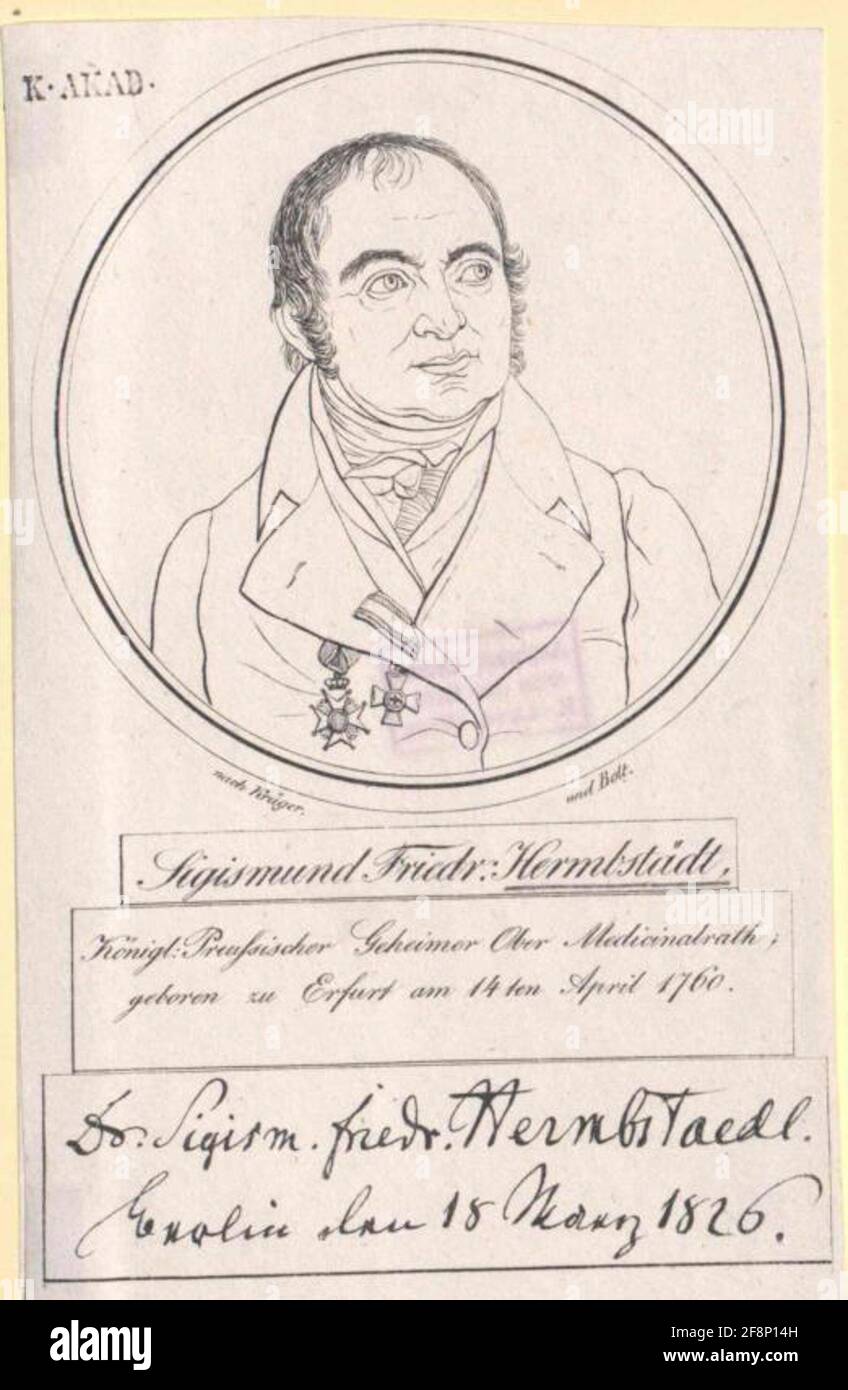 K·AKAD.
nach Krüger.
und Bolt.
Sigismund Friedr: Hermbstädt,
Königl: Preußischer Geheimer Ober Medicinalrath;
geboren zu Erfurt am 14ten April 1760.
Dr. Sigism. friedr. Hermbstaedt.
Berlin den 18 Maerz 1826.
alamy
alamy
Image ID: 2F8P14H
www.alamy.com